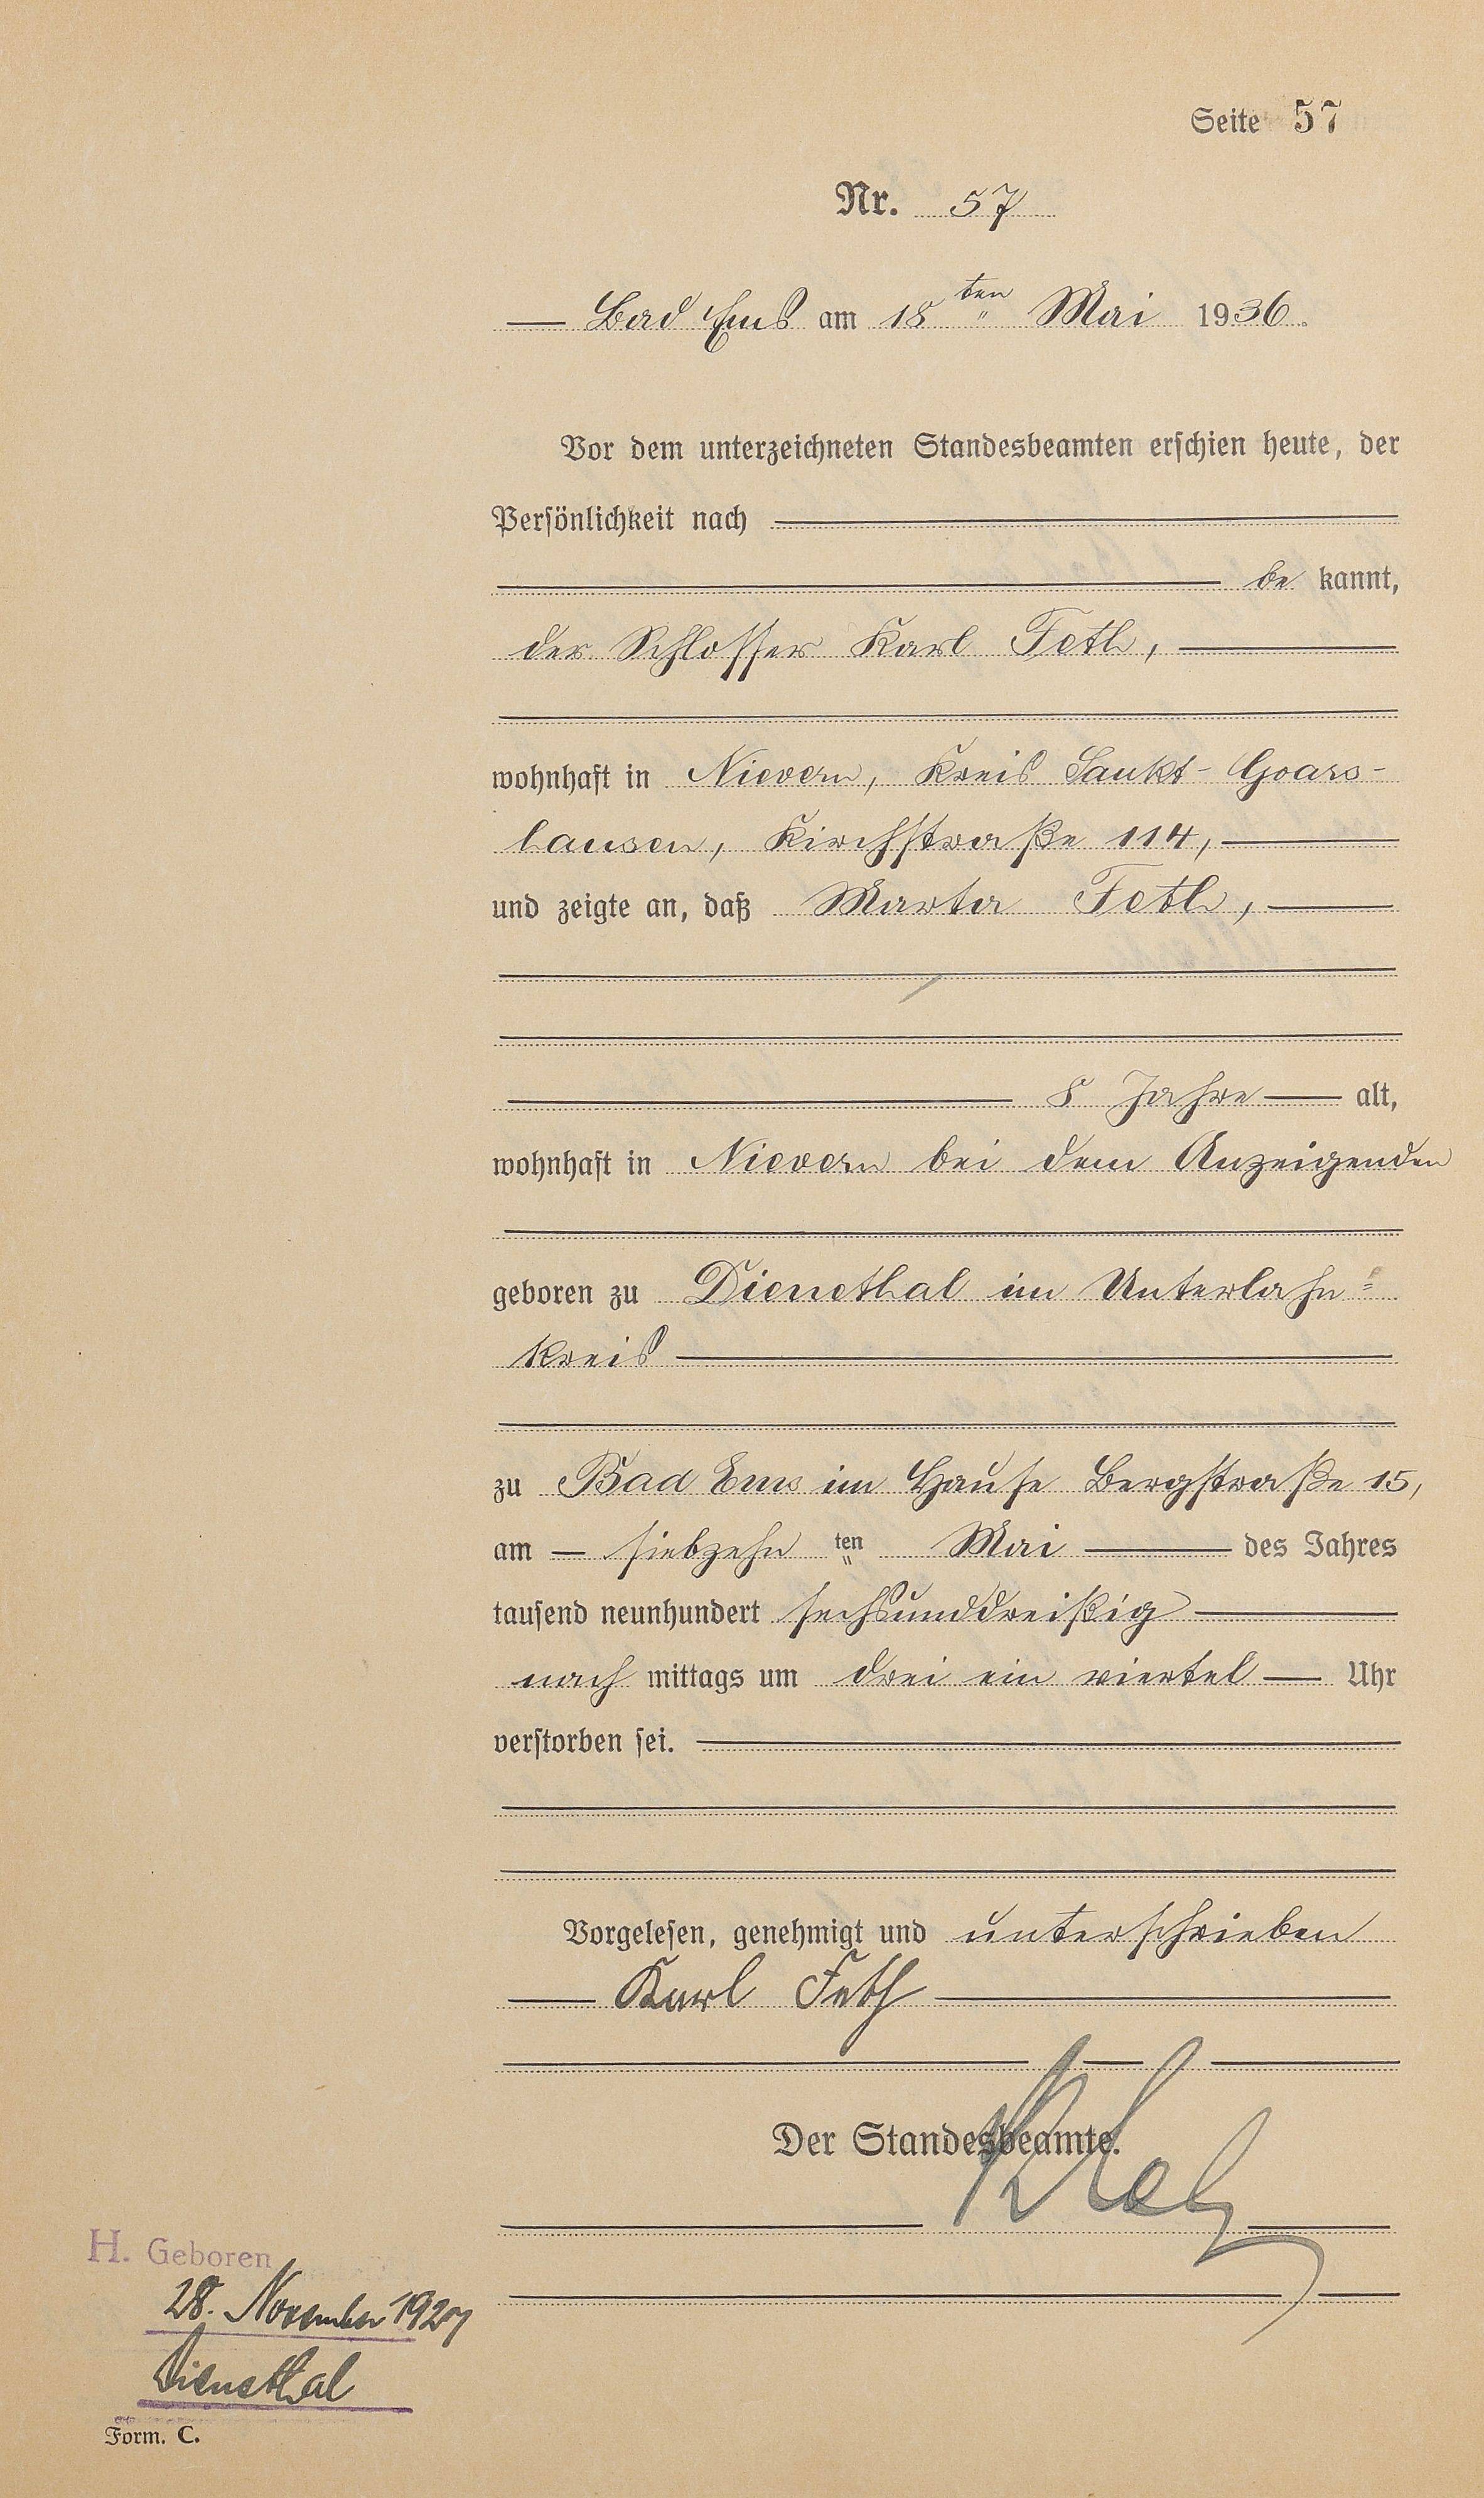 Seite 57
Nr. 57
Bad Ems am 18ten Mai 1936.
Vor dem unterzeichneten Standesbeamten erschien heute, der
Persönlichkeit nach
be kannt,
der Schlosser Karl Feth,
wohnhaft in Nievern, Kreis Sankt-Goars-
hausen, Kirchstraße 114,
und zeigte an, daß Marta Feth,
8 Jahre alt,
wohnhaft in Nievern bei dem Anzeigenden
geboren zu Dienethal im Unterlahn=
kreis
zu Bad Ems im Hause Bergstraße 15,
am siebzehn ten Mai des Jahres
tausend neunhundert sechsunddreißig
nach mittags um drei ein viertel Uhr
verstorben sei.
Vorgelesen, genehmigt und unterschrieben
Karl Feth
Der Standesbeamte.
H. Geboren
28. November 1927
Dienethal
Form. C.